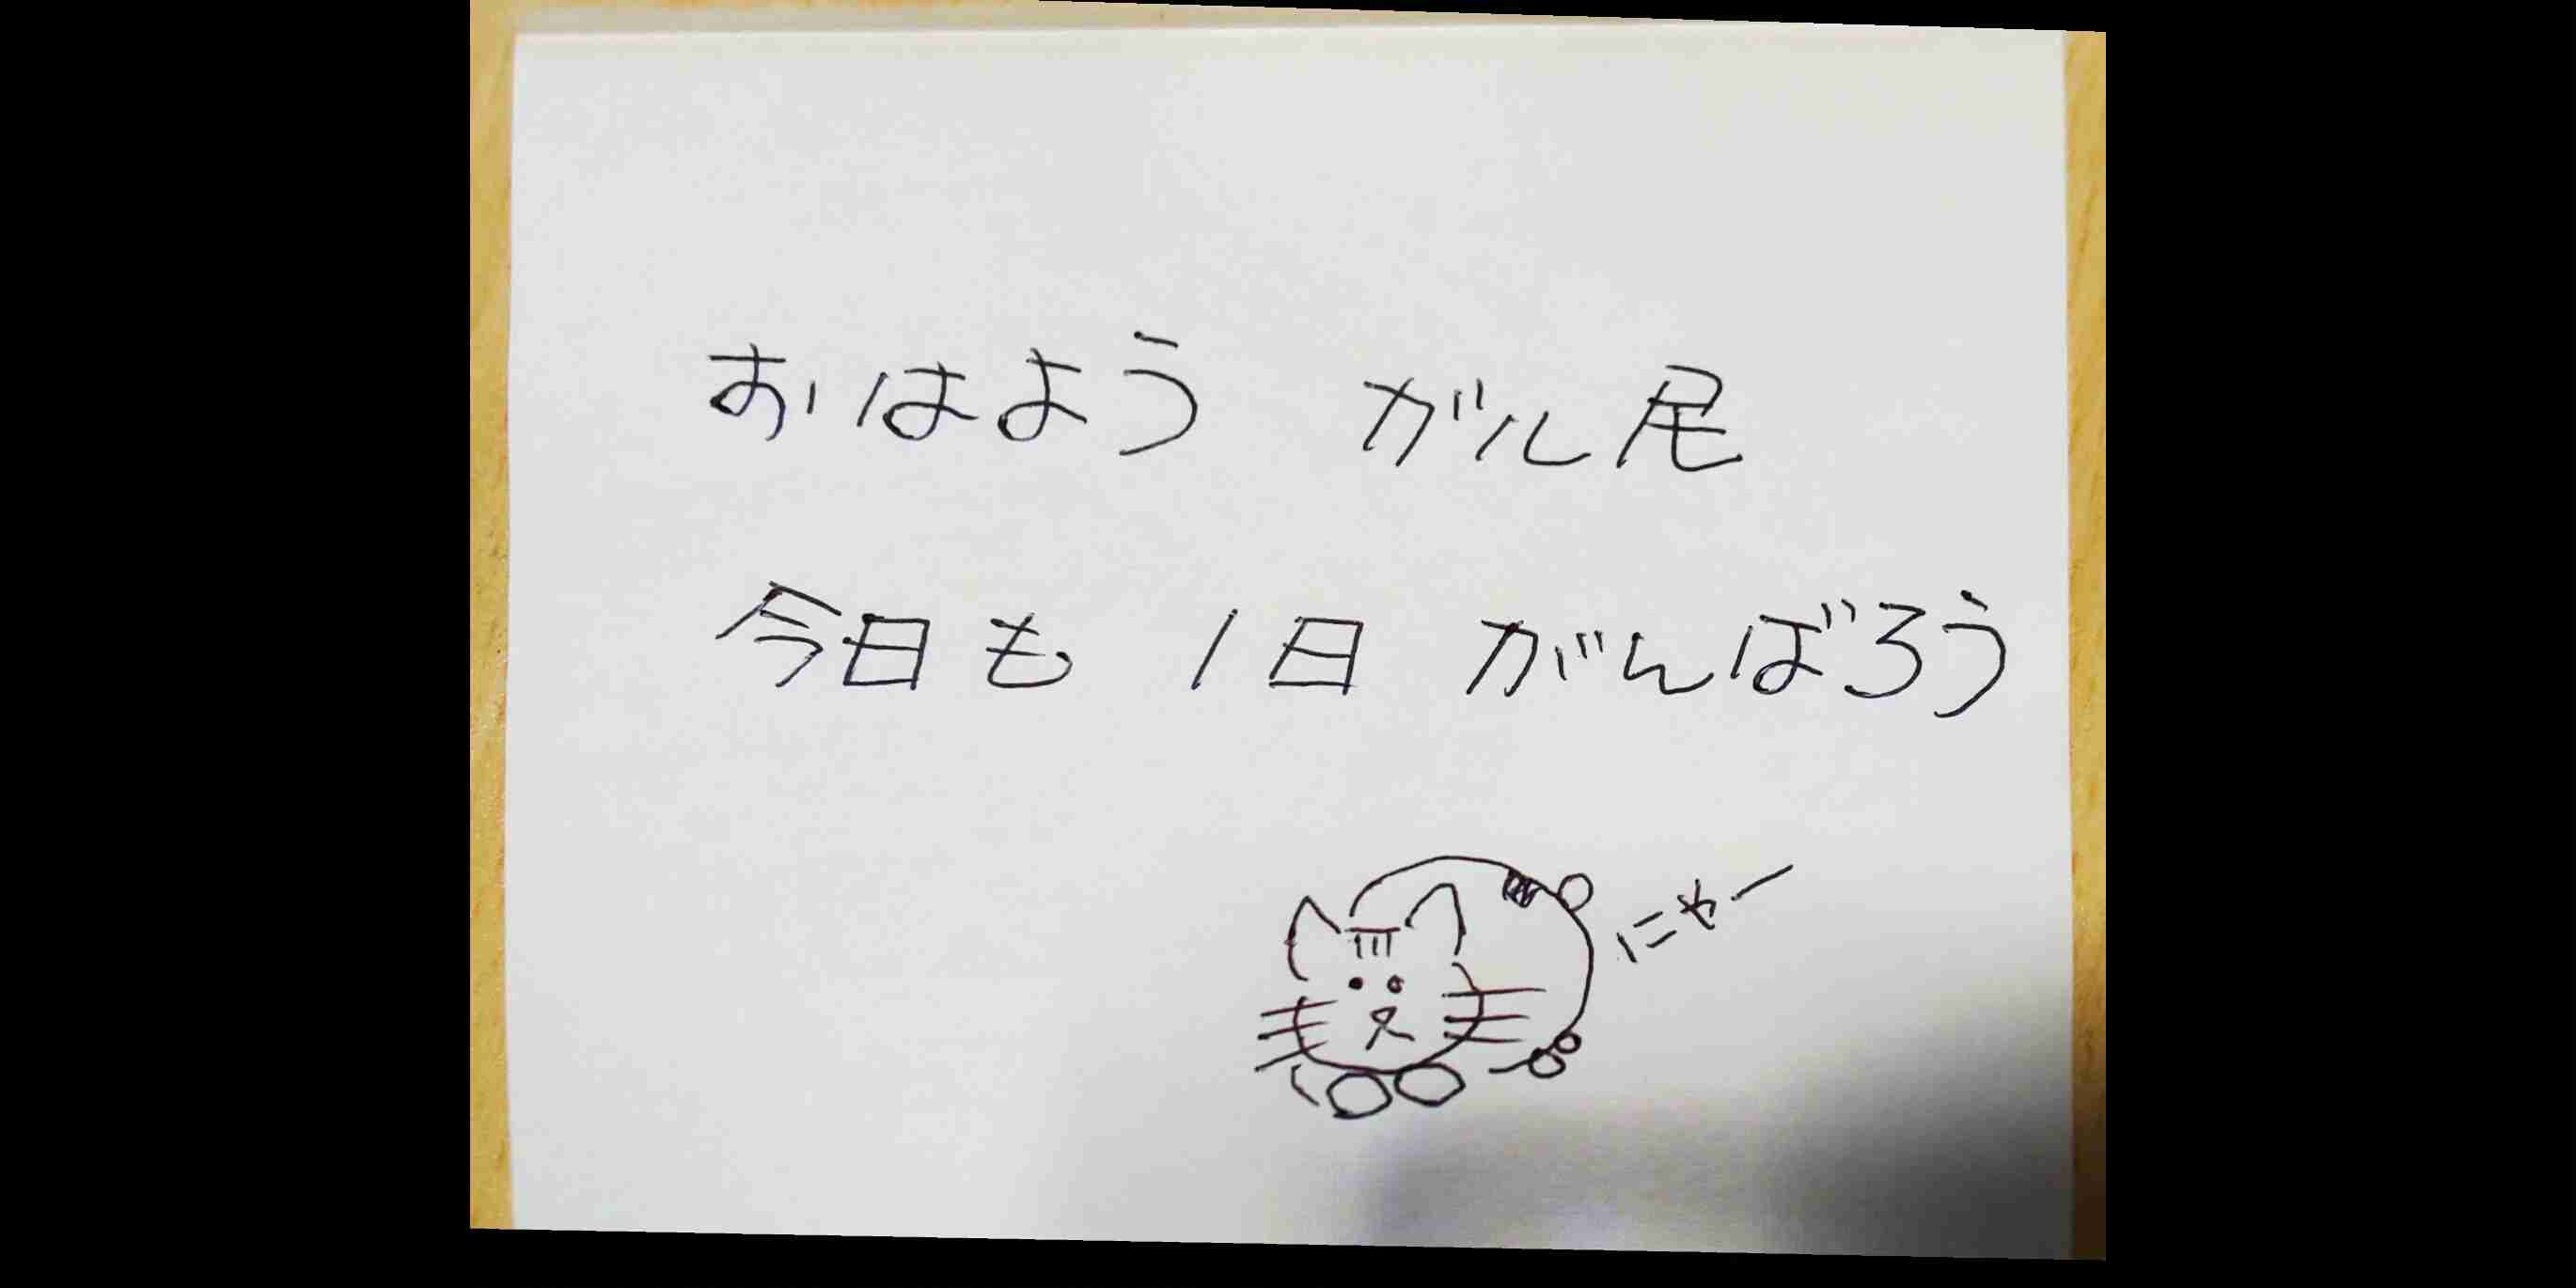 おはよう ガル尾
今日も 1日 がんばろう
にゃー